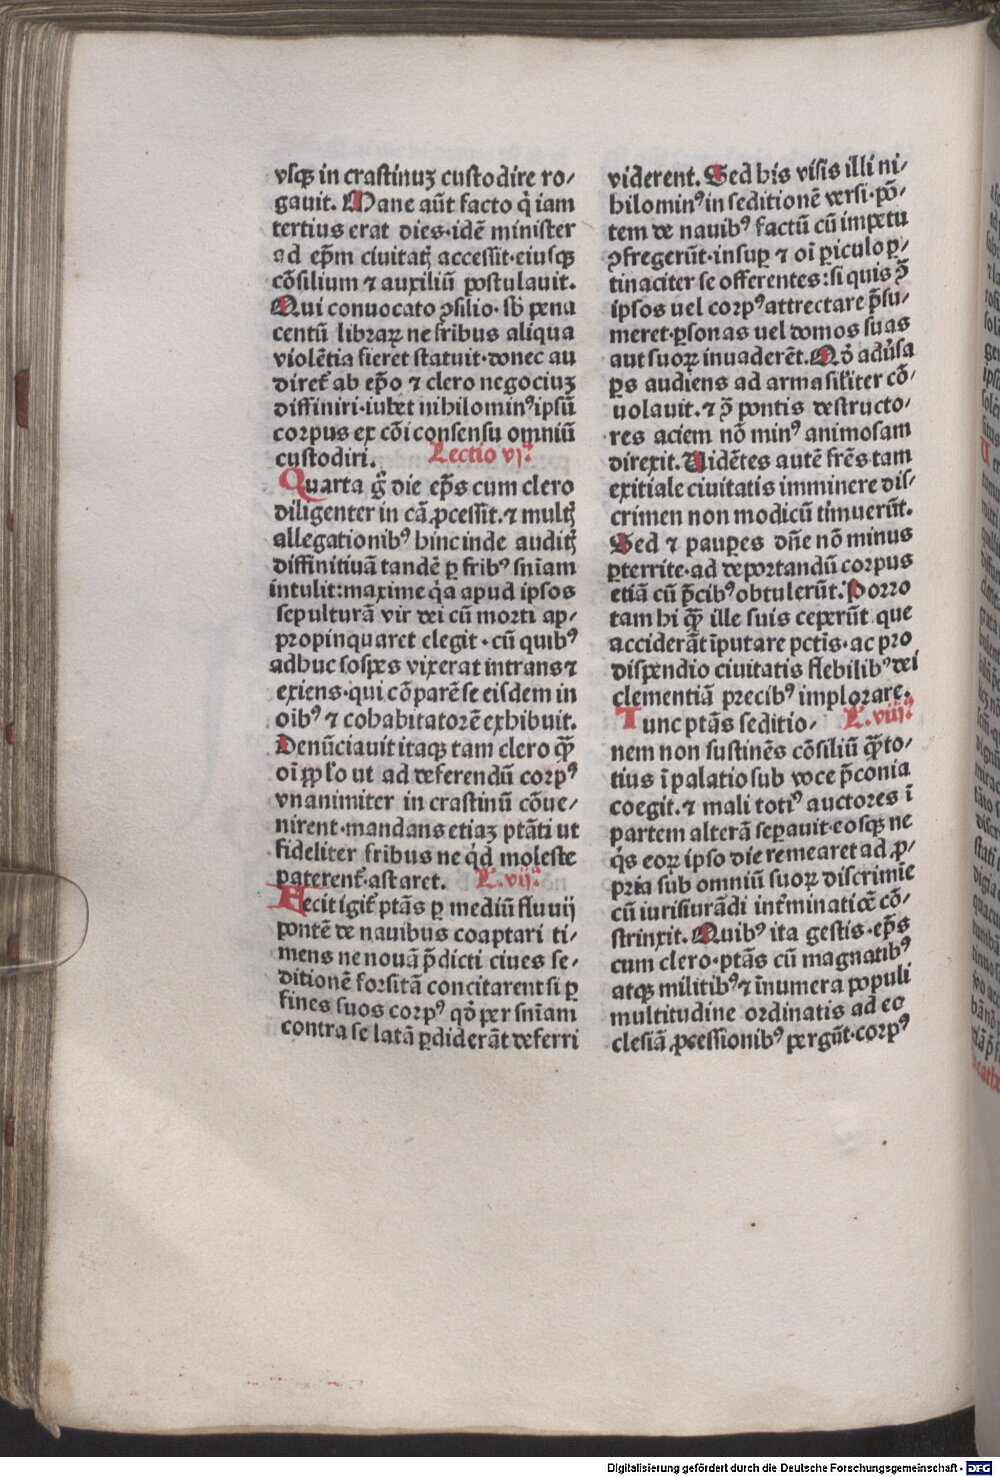 vsqꝫ in crastinuꝫ custodire ro/
gauit. Mane aūt facto q̇ iam
tertius erat dies·idē minister
ad ep̄m ciuitatꝭ accessit·eiusqꝫ
cōsilium ⁊ auxiliū postulauit.
Qui conuocato ꝯsilio· sb̄ pena
centū libraꝝ ne fribus aliqua
violētia fieret statuit·donec au
diret᷑ ab ep̄o ⁊ clero negociuꝫ
diffiniri·iubet nihilominꝰ ipsū
corpus ex cōi consensu omniū
custodiri. Lectio vj.ᵃ
Quarta g̊ die ep̄s cum clero
diligenter in cā ꝓcessit.⁊ multꝭ
allegationibꝰ hincinde auditꝭ
diffinitiuā tandē ꝑ fribꝰ sniam
intulit:maxime q̇a apud ipsos
sepulturā vir dei cū morti ap/
propinquaret elegit·cū quibꝰ
adhuc sospes vixerat intrans ⁊
exiens·qui cō parē se eisdem in
oibꝰ ⁊ cohabitatorē exhibuit.
Denūciauit itaqꝫ tam clero qꝫ̄
oi ꝓplo ut ad deferendū corpꝰ
vnanimiter in crastinū cōue/
nirent·mandans etiaꝫ ptāti ut
fideliter fribus ne q̇d moleste
paterent᷑·astaret. L.vij.ᵃ
Fecit igit᷑ ptās ꝑ mediū fluuij
pontē de nauibus coaptari ti/
mens ne nouā p̄dicti ciues se/
ditionē forsitā concitarent si ꝑ
fines suos corpꝰ qō per sniam
contra se latā ꝑdiderāt deferri
viderent. Sed his visis illi ni/
hilominꝰ in seditionē versi·pō/
tem de nauibꝰ factū cū impetu
ꝯfregerūt·insuꝑ ⁊ oi ꝑiculo ꝑ/
tinaciter se offerentes:si quis p̄
ipsos uel corpꝰ attrectare p̄su/
meret·ꝑsonas uel domos suas
aut suoꝝ inuaderēt. Qō aduersa
ꝑs audiens ad arma similiter cō/
uolauit.⁊ p̄ pontis destructo/
res aciem nō minꝰ animosam
direxit. Uidētes autē frēs tam
exitiale ciuitatis imminere dis/
crimen non modicū timuerūt.
Sed ⁊ pauꝑes dn̄e nō minus
ꝑterrite·ad deportandū corpus
etiā cū p̄cibꝰ obtulerūt. Porro
tam hi qꝫ̄ ille suis ceperūt que
acciderāt īputare pctīs·ac pro
dispendio ciuitatis flebilibꝰ dei
clementiā precibꝰ implorare.
Tunc ptās seditio/ L.viij.ᵃ
nem non sustinēs cōsiliū qꝫ̄to/
tius ī palatio sub voce p̄conia
coegit.⁊ mali totiꝰ auctores ī
partem alterā separauit·eosqꝫ ne
q̇s eoꝝ ipso die remearet ad ꝓ/
pria sub omniū suoꝝ discrimīe
cū iurisiurādi int᷑minatiōe cō/
strinxit. Quibꝰ ita gestis·ep̄s
cum clero·ptās cū magnatibꝰ
atqꝫ militibꝰ ⁊ īnumera populi
multitudine ordinatis ad ec
clesiā ꝓcessionibꝰ pergūt·corpꝰ
Digitalisierung gefördert durch die Deutsche Forschungsgemeinschaft - DFG